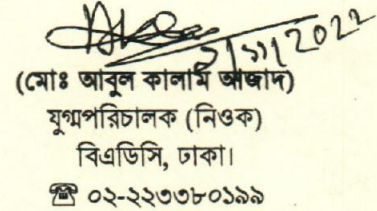 ২/১১/2022
(মোঃ আবুল কালাম আজাদ)
যুগ্মপরিচালক (নিওক)
বিএডিসি, ঢাকা।
☎ ০২-২২৩৩৮০১৯৯